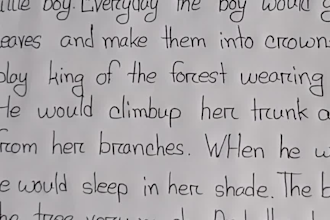 little boy. Everyday the boy would g
eaves and make them into crown
play king of the forest wearing
He would climbup her trunk a
from her branches. WHen he w
e would sleep in her shade. The b